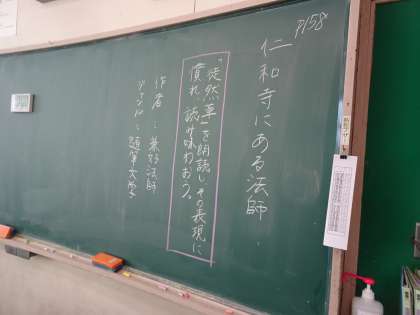 P158
仁和寺にある法師
「徒然草」を朗読し、その表現に
慣れ、読み味わおう。
作者：兼好法師
ジャンル：随筆文学